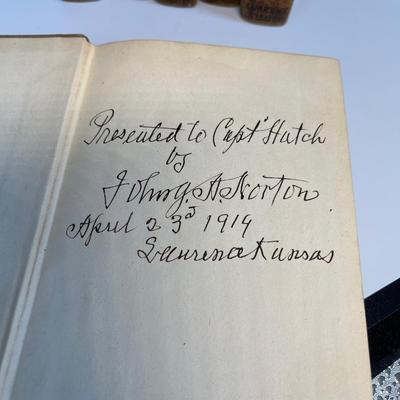 Presented to Capt Hutch
by
John g. A. Norton
April 23d 1914
Lawrence Kansas